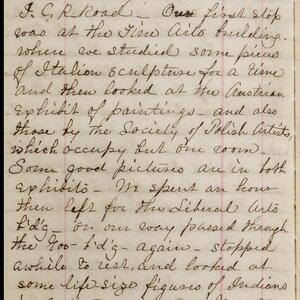 I. C. R. Road — Our first stop
was at the Fine Arts building.
when we studied some pieces
of Italian sculpture for a time
and then looked at the Austrian
exhibit of paintings — and also
those by the Society of Polish Artists,
which occupy but one room.
Some good pictures are in both
exhibits — We spent an hour
then left for the Liberal Arts
b'd'g — on our way passed through
the Zoo- b'd'g — again — stopped
awhile to rest, and looked at
some life size figures of Indians